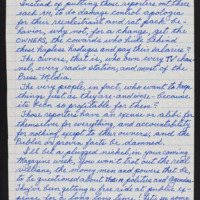 Instead of putting these reporters out there
each, to do damage control apologia
for their recalcitrant and rat pack be-
havior, why not, for a change, get the
OWNERS, the cowards who hide behind
these hapless hostages and pay their salaries?
The Owners, that is, who own every TV chan-
nel, every radio station, and most of the
Press Media.
The very people, in fact, who want to keep
things just as they are and were - because
it's been so profitable for them?
Those reporters have an excuse or alibi for
themselves for everything, and accountability
for nothing, except to their owners, and the
Public Disfavor go to be damned.
I'll bet a plugged nickel, in your coming
Magazine week, you won't trot out the real
villains, the money men and powers that be,
to be questioned about their politics and agenda.
They've been getting a free ride at public exp-
ense for a long, long time! Let's us some